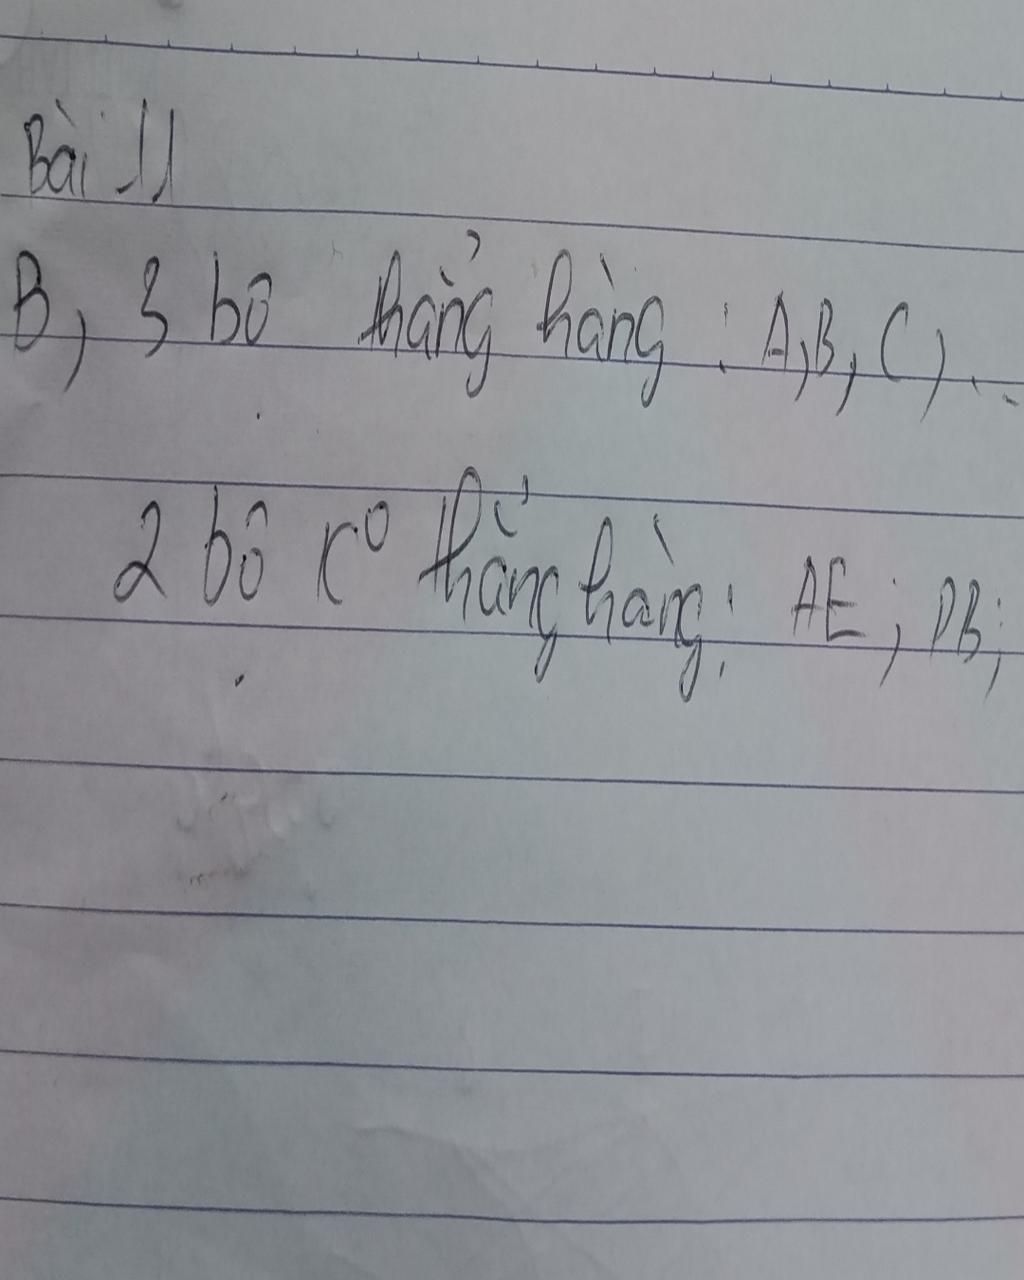 Bài 11
B, 3 bô thẳng hàng : A,B, C, ..
2 bô K⁰ thẳng hàng: AE ; DB;